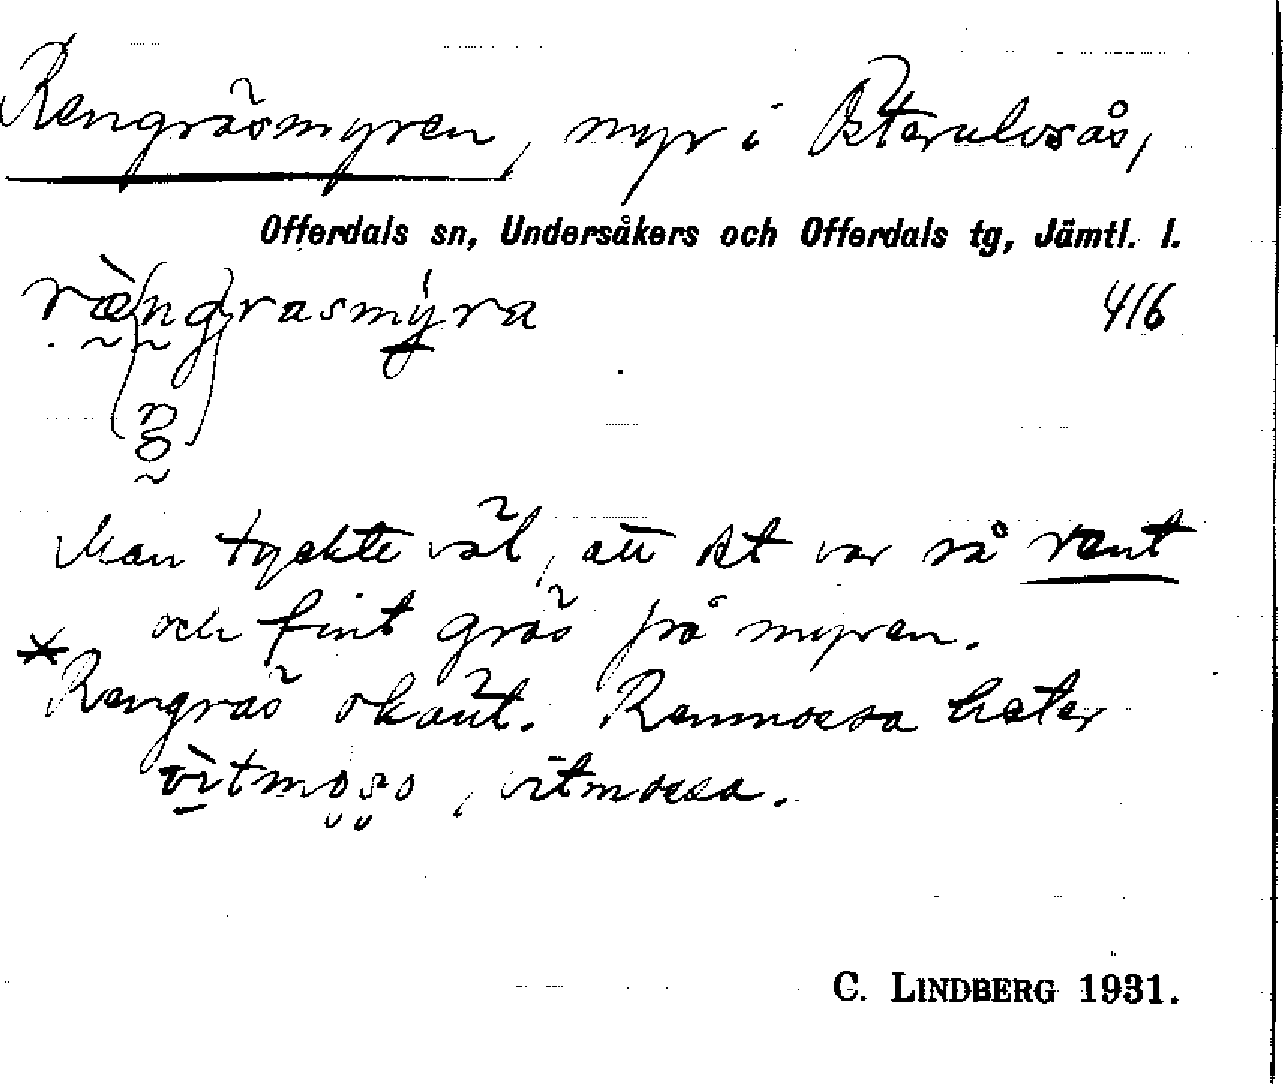 Rengräsmyren, myr i Österulvsås,
Offerdals sn, Undersåkers och Offerdals tg, Jämtl. l.
416
Man tyckte väl, att det var så rent
och fint gräs på myren.
*Rengräs okänt. Renmossa heter
vitmoso, vitmossa.
C. LINDBERG 1931.